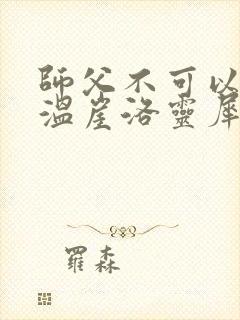 師父不可以
溫崖洛靈犀
羅森